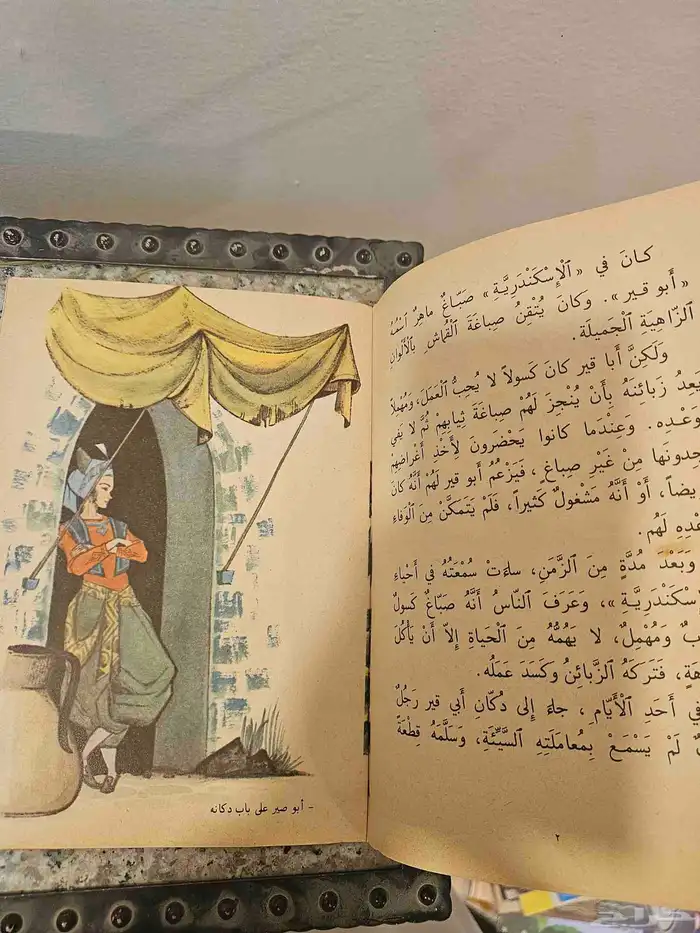 كانَ في «ٱلْإِسْكَنْدَرِيَّةِ» صَبّاغٌ ماهِرٌ ٱسْمُهُ
«أَبو قير». وَكانَ يُتْقِنُ صِباغَةَ ٱلْقُماشِ بِٱلْأَلْوانِ
الزّاهِيَةِ ٱلْجَميلَةِ.
وَلَكِنَّ أَبا قير كانَ كَسولاً لا يُحِبُّ ٱلْعَمَلَ، وَمُهْمِلاً
يَعِدُ زَبائِنَهُ بِأَنْ يُنْجِزَ لَهُمْ صِباغَةَ ثِيابِهِمْ ثُمَّ لا يَفي
وَعْدِهِ. وَعِنْدَما كانوا يَحْضُرونَ لِأَخْذِ أَغْراضِهِمْ
جِدونَها مِنْ غَيْرِ صِباغٍ، فَيَزْعُمُ أَبو قير لَهُمْ أَنَّهُ كانَ
ريضاً، أَوْ أَنَّهُ مَشْغولٌ كَثيراً، فَلَمْ يَتَمَكَّنْ مِنَ ٱلْوَفاءِ
عْدِهِ لَهُم.
وَبَعْدَ مُدَّةٍ مِنَ ٱلزَّمَنِ، ساءَتْ سُمْعَتُهُ في أَحْياءِ
إِسْكَنْدَرِيَّةِ»، وَعَرَفَ ٱلنّاسُ أَنَّهُ صَبّاغٌ كَسولٌ
بٌ وَمُهْمِلٌ، لا يَهُمُّهُ مِنَ ٱلْحَياةِ إِلاّ أَنْ يَأْكُلَ
هَةَ، فَتَرَكَهُ ٱلزَّبائِنُ وَكَسَدَ عَمَلُه.
في أَحَدِ ٱلْأَيّامِ، جاءَ إِلى دُكّانِ أَبي قير رَجُلٌ
لَمْ يَسْمَعْ بِمُعامَلَتِهِ ٱلسَّيِّئَةِ، وَسَلَّمَهُ قِطْعَةً
٢
- أبو صير على باب دكانه
حراج